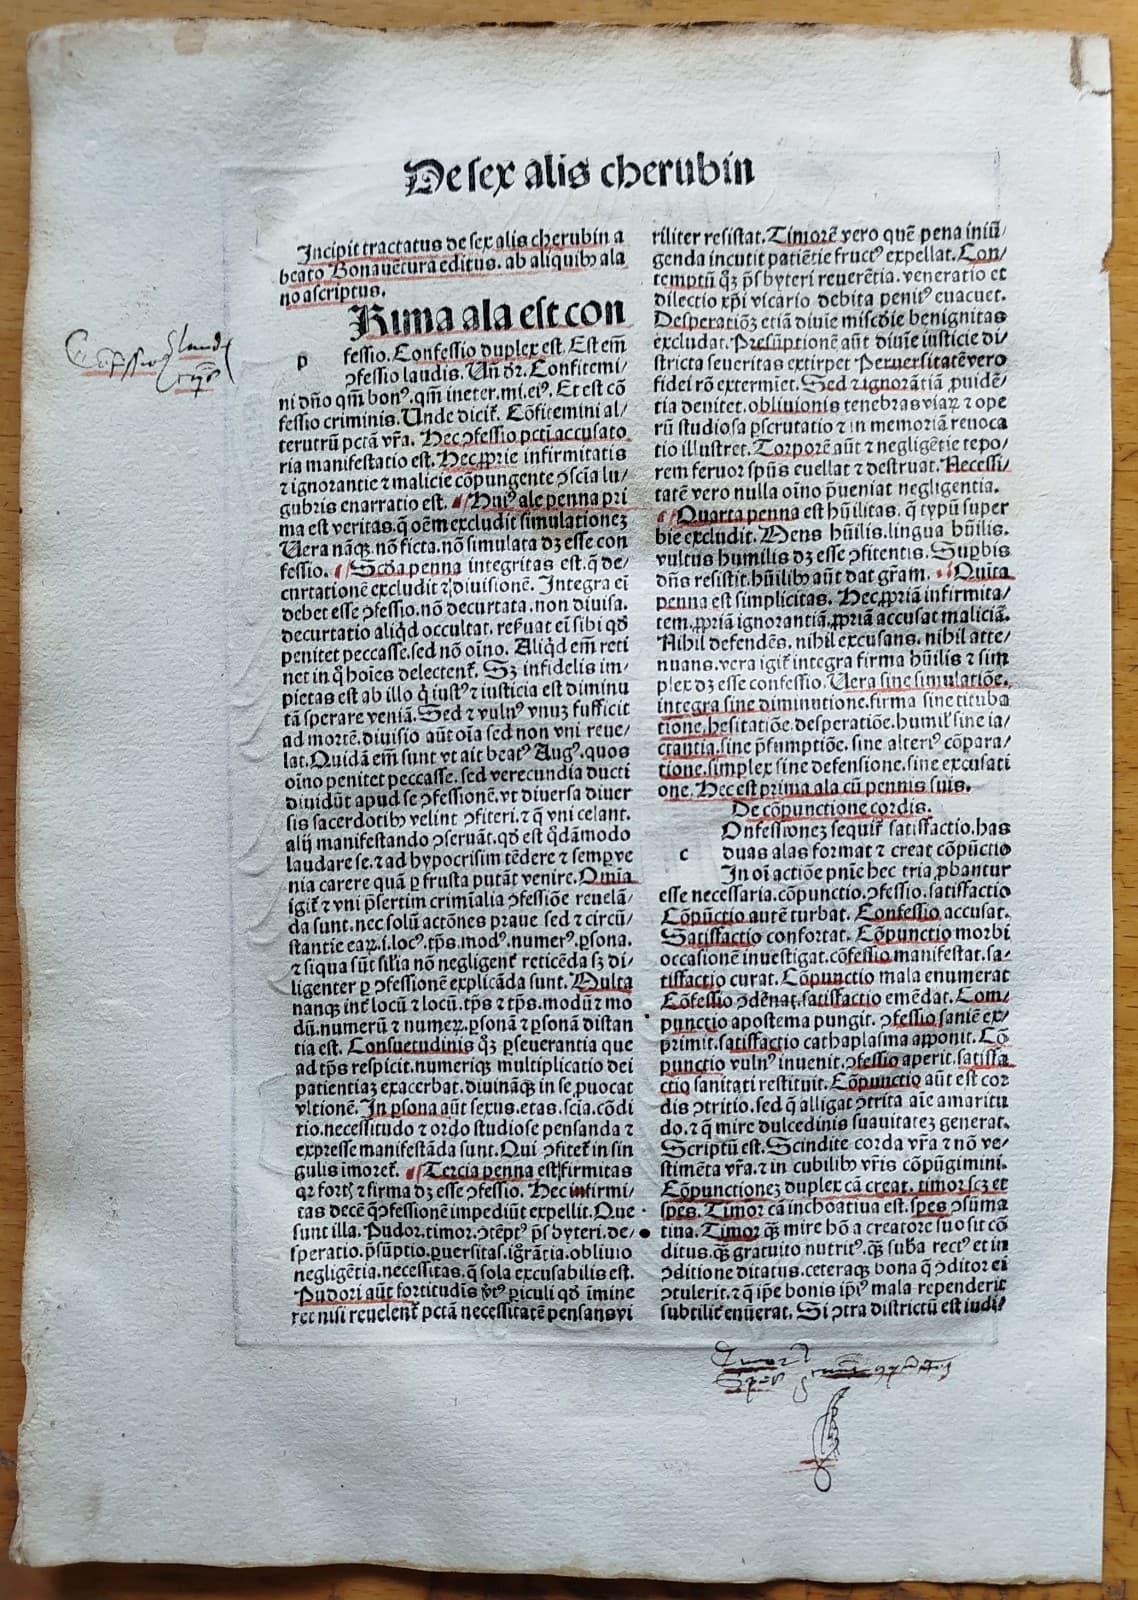 De sex alis cherubin
Incipit tractatus de sex alis cherubin a
beato Bonauētura editus. ab aliquibꝫ ala
no ascriptus.
Rima ala est con
p fessio. Confessio duplex est. Est em̄
ꝯfessio laudis. Un̄ dr̄. Confitemi/
ni dn̄o qm̄ bonꝰ. qm̄ ineter. mi. eiꝰ. Et est cō
fessio criminis. Unde dicit̉. Cōfitemini al/
terutrū pctā vr̄a. Hec ꝯfessio pcti accusato
ria manifestatio est. Hec ꝓprie infirmitatis
⁊ ignorantie ⁊ malicie cōpungente ꝯscīa lu/
gubris enarratio est. Huiꝰ ale penna pri
ma est veritas. q̄ oēm excludit simulationeꝫ
Uera nāqꝫ. nō ficta. nō simulata dꝫ esse con
fessio. Scd̄a penna integritas est. q̄ de/
curtationē excludit ⁊ diuisionē. Integra ei̅
debet esse ꝯfessio. nō decurtata. non diuisa.
decurtatio aliqd̄ occultat. reẜuat ei̅ sibi qd̄
penitet peccasse. sed nō oīno. Aliqd̄ em̄ reti
net in q̊ hoīes delectent̉. Sꝫ infidelis im/
pietas est ab illo q̇ iustꝰ ⁊ iusticia est diminu
tā sperare veniā. Sed ⁊ vulnꝰ vnuꝫ sufficit
ad mortē. diuisio aūt oīa sed non vni reue/
lat. Quidā em̄ sunt vt ait beatꝰ Augꝰ. quos
oīno penitet peccasse. sed verecundia ducti
diuidūt apud se ꝯfessionē. vt diuersa diuer
sis sacerdotibꝫ velint ꝯfiteri. ⁊ q̄ vni celant.
alij manifestando ꝯseruāt. qd̄ est q̊dāmodo
laudare se. ⁊ ad hypocrisim tēdere ⁊ semꝑ ve
nia carere quā ꝑ frusta putāt venire. Omīa
igit̉ ⁊ vni p̄sertim crimīalia ꝯfessiōe reuelā/
da sunt. nec solū actōnes praue sed ⁊ circū/
stantie eaꝝ. i. locꝰ. tp̄s. modꝰ. numerꝰ. ꝑsona.
⁊ siqua sūt sil̄ia nō negligent̉ reticēda sꝫ di/
ligenter ꝑ ꝯfessionē explicāda sunt. Multa
nanqꝫ int̉ locū ⁊ locū. tp̄s ⁊ tp̄s. modū ⁊ mo
dū. numerū ⁊ numeꝝ. ꝑsonā ⁊ ꝑsonā distan
tia est. Consuetudinis qꝫ ꝑseuerantia que
ad tp̄s respicit. numeriqꝫ multiplicatio dei
patientiaꝫ exacerbat. diuināqꝫ in se ꝓuocat
vltionē. In ꝑsona aūt sexus. etas. scīa. cōdi
tio. necessitudo ⁊ ordo studiose pensanda ⁊
expresse manifestāda sunt. Qui ꝯfitet̉ in sin
gulis imoret̉. Tercia penna est firmitas
qr fortis ⁊ firma dꝫ esse ꝯfessio. Hec infirmi/
tas decē q̄ ꝯfessionē impediūt expellit. Que
sunt illa. Pudor. timor. ꝯtēptꝰ p̄sbyteri. de/
speratio. p̄sūptio. ꝑuersitas. ignrātia. obliuio
negligētia. necessitas. q̄ sola excusabilis est.
Pudori aūt fortitudīs vt̉ꝰ piculi qd̄ imine
ret nisi reuelent̉ pctā necessitatē pensans vi
riliter resistat. Timorē vero quē pena iniū/
genda incutit patiētie fructꝰ expellat. Con/
temptū qꝫ p̄sbyteri reuerētia. veneratio et
dilectio xp̄i vicario debita penitꝰ euacuet.
Desperatiōꝫ etiā diuie miscd̄ie benignitas
excludat. Presūptionē aūt diuie iusticie di/
stricta seueritas extirpet Peruersitatē vero
fidei rō extermīet. Sed ⁊ ignorātiā ꝓuidē/
tia deuitet. obliuionis tenebras viaꝝ ⁊ ope
rū studiosa ꝑscrutatio ⁊ in memoriā reuoca
tio illustret. Torporē aūt ⁊ negligētie tepo/
rem feruor spūs euellat ⁊ destruat. Necessi/
tatē vero nulla oīno p̄ueniat negligentia.
Quarta penna est hūilitas. q̄ typū super
bie excludit. Mens hūilis. lingua hūilis.
vultus humilis dꝫ esse ꝯfitentis. Suꝑbis
dn̄s resistit. hūilibꝫ aūt dat gr̄am. Quīta
penna est simplicitas. Hec ꝓpriā infirmita/
tem. ꝓpriā ignorantiā. ꝓpriā accusat maliciā.
Nihil defendēs. nihil excusans. nihil atte/
nuans. vera igit̉ integra firma hūilis ⁊ sim
plex dꝫ esse confessio. Uera sine simulatiōe.
integra sine diminutione. firma sine tituba
tione. hesitatiōe. desperatiōe. humil̉ sine ia/
ctantia. sine p̄sumptiōe. sine alteriꝰ cōpara/
tione. simplex sine defensione. sine excusati
one. Hec est prima ala cū pennis suis.
De cōpunctione cordis.
Onfessioneꝫ sequit̉ satisfactio. has
c duas alas format ⁊ creat cōpūctio
In oī actiōe pnīe hec tria ꝓbantur
esse necessaria. cōpunctio. ꝯfessio. satisfactio
Cōpūctio autē turbat. Confessio accusat.
Satisfactio confortat. Cōpunctio morbi
occasionē inuestigat. cōfessio manifestat. sa/
tisfactio curat. Cōpunctio mala enumerat
Cōfessio ꝯdēnat. satisfactio emēdat. Com/
punctio apostema pungit. ꝯfessio saniē ex/
primit. satisfactio cathaplasma apponit. Cō
punctio vulnꝰ inuenit. ꝯfessio aperit. satisfa
ctio sanitati restituit. Cōpunctio aūt est cor
dis ꝯtritio. sed q̄ alligat ꝯtrita. aīe amaritu
do. ⁊ q̄ mire dulcedinis suauitateꝫ generat.
Scriptū est. Scindite corda vr̄a ⁊ nō ve/
stimēta vr̄a. ⁊ in cubilibꝫ vr̄is cōpūgimini.
Cōpunctioneꝫ duplex cā creat. timor scꝫ et
spes. Timor cā inchoatiua est. spes ꝯsūma
tiua. Timor qꝫ mire hō a creatore suo sit cō
ditus. qꝫ gratuito nutritꝰ. qꝫ suba rectꝰ et in
ꝯditione ditatus. ceteraqꝫ bona q̄ ꝯditor ei
ꝯtulerit. ⁊ q̄ ipē bonis ipiꝰ mala rependerit
subtilit̉ enūerat. Si ꝯtra districtū est iudi/
Confessio
laud
Timor
Spes